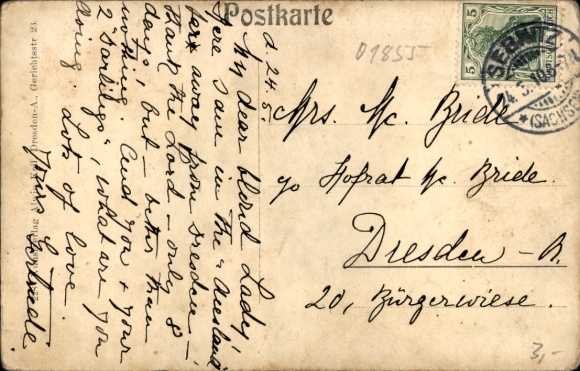 Postkarte
01855
5 5
SEBNITZ
(SACHSEN)
d. 24.5.
My dear blond Lady!
Here I am in the
far away from Dresden –
thank the Lord – only 8
days, but – better than
nothing. And you & your
2 darlings, what are you
doing? Lots of love.
Yours Gertrude.
Mrs. Mc. Bride
c/o Hofrat Mc. Bride.
Dresden – A.
20, Bürgerwiese.
3,-
Dresden-A., Gerichtsstr 23.